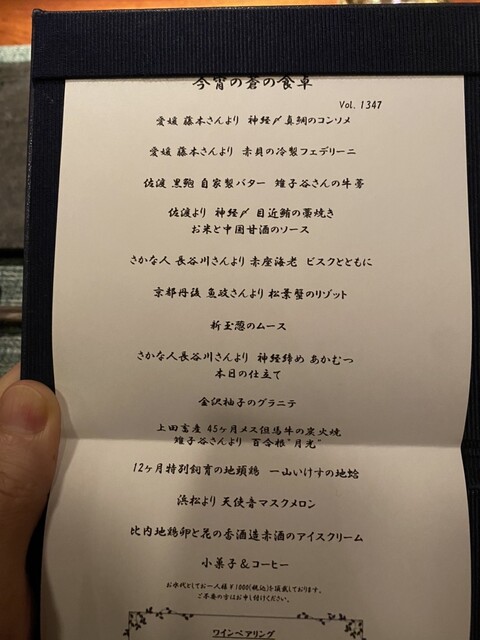 今宵の蒼の食卓
Vol. 1347
愛媛 藤本さんより 神経〆真鯛のコンソメ
愛媛 藤本さんより 赤貝の冷製フェデリーニ
佐渡 黒鮑 自家製バター 雉子谷さんの牛蒡
佐渡より 神経〆 目近鮪の藁焼き
お米と中国甘酒のソース
さかな人 長谷川さんより 赤座海老 ビスクとともに
京都丹後 魚政さんより 松葉蟹のリゾット
新玉葱のムース
さかな人長谷川さんより 神経締め あかむつ
本日の仕立て
金沢柚子のグラニテ
上田畜産 45ヶ月メス但馬牛の炭火焼
雉子谷さんより 百合根"月光"
12ヶ月特別飼育の地頭鶏 一山いけすの地蛤
浜松より 天使音マスクメロン
比内地鶏卵と花の香酒造赤酒のアイスクリーム
小菓子&コーヒー
お水代としてお一人様￥1000(税込)を頂戴しております。
ご不要の方はお申し付けください。
ワインペアリング